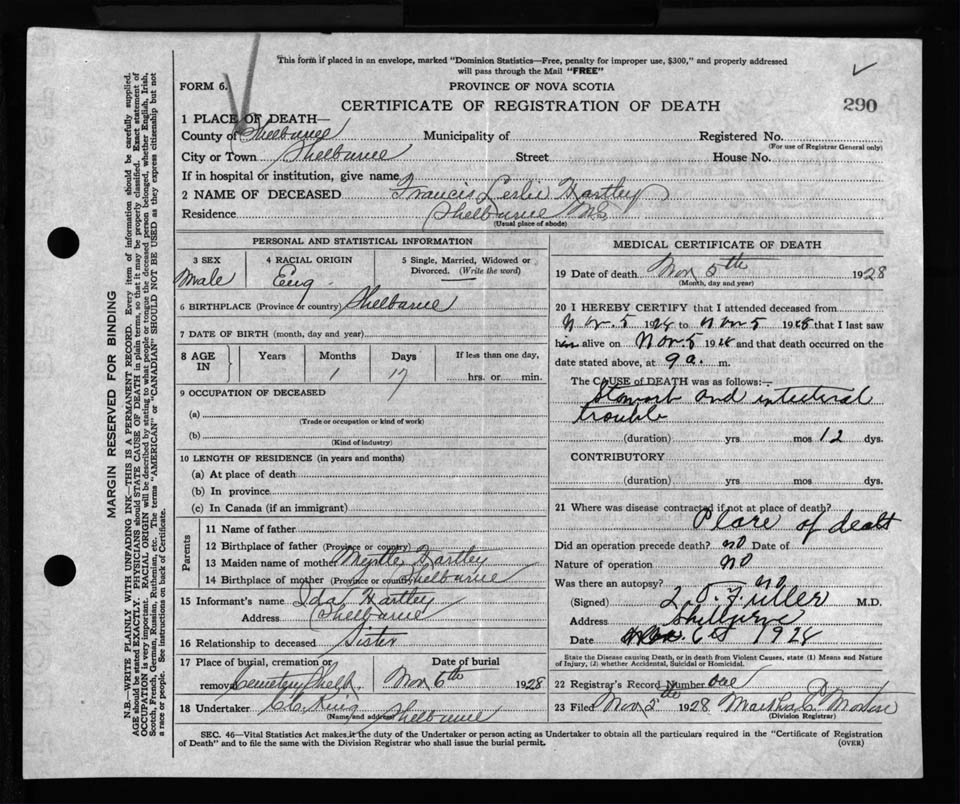 This form if placed in an envelope, marked "Dominion Statistics—Free, penalty for improper use, $300," and properly addressed
will pass through the Mail "FREE"
FORM 6.
PROVINCE OF NOVA SCOTIA
CERTIFICATE OF REGISTRATION OF DEATH
290
1 PLACE OF DEATH—
County of Shelburne Municipality of Registered No.
(For use of Registrar General only)
City or Town Shelburne Street House No.
If in hospital or institution, give name
2 NAME OF DECEASED Francis Leslie Hartley
Residence Shelburne N.S.
(Usual place of abode)
PERSONAL AND STATISTICAL INFORMATION
3 SEX 4 RACIAL ORIGIN 5 Single, Married, Widowed or Divorced. (Write the word)
Male Eng.
6 BIRTHPLACE (Province or country) Shelburne
7 DATE OF BIRTH (month, day and year)
8 AGE IN Years Months Days If less than one day,
1 17 hrs. or min.
9 OCCUPATION OF DECEASED
(a)
(Trade or occupation or kind of work)
(b)
(Kind of industry)
10 LENGTH OF RESIDENCE (in years and months)
(a) At place of death
(b) In province
(c) In Canada (if an immigrant)
Parents
11 Name of father
12 Birthplace of father (Province or country)
13 Maiden name of mother Myrtle Hartley
14 Birthplace of mother (Province or country) Shelburne
15 Informant's name Ida Hartley
Address Shelburne
16 Relationship to deceased Sister
17 Place of burial, cremation or Date of burial
removal Cemetery Shelb. Nov 6th 1928
18 Undertaker King
(Name and address) Shelburne
MEDICAL CERTIFICATE OF DEATH
19 Date of death Nov 5th 1928
(Month, day and year)
20 I HEREBY CERTIFY that I attended deceased from
Nov. 5 1928 to Nov 5 1928 that I last saw
him alive on Nov. 5 1928 and that death occurred on the
date stated above, at 9 a. m.
The CAUSE of DEATH was as follows:—
Stomach and intestinal
trouble
(duration) yrs mos 12 dys.
CONTRIBUTORY
(duration) yrs mos dys.
21 Where was disease contracted if not at place of death?
Place of death
Did an operation precede death? no Date of
Nature of operation no
Was there an autopsy? no
(Signed) Fuller M.D.
Address
Date 6th 1928
State the Disease causing Death, or in death from Violent Causes, state (1) Means and Nature
of Injury, (2) whether Accidental, Suicidal or Homicidal.
22 Registrar's Record Number
23 Filed Nov 1928 Martha
(Division Registrar)
SEC. 46—Vital Statistics Act makes it the duty of the Undertaker or person acting as Undertaker to obtain all the particulars required in the "Certificate of Registration
of Death" and to file the same with the Division Registrar who shall issue the burial permit.
(OVER)
MARGIN RESERVED FOR BINDING
N.B.—WRITE PLAINLY WITH UNFADING INK—THIS IS A PERMANENT RECORD. Every item of information should be carefully supplied.
AGE should be stated EXACTLY. PHYSICIANS should STATE CAUSE OF DEATH in plain terms, so that it may be properly classified. Exact statement of
OCCUPATION is very important. RACIAL ORIGIN will be described by stating to what people or tongue the deceased person belonged, whether English, Irish,
Scotch, French, German, Russian, Ruthenian, etc. The terms "AMERICAN" or "CANADIAN" SHOULD NOT BE USED as they express citizenship but not
a race or people. See instructions on back of Certificate.